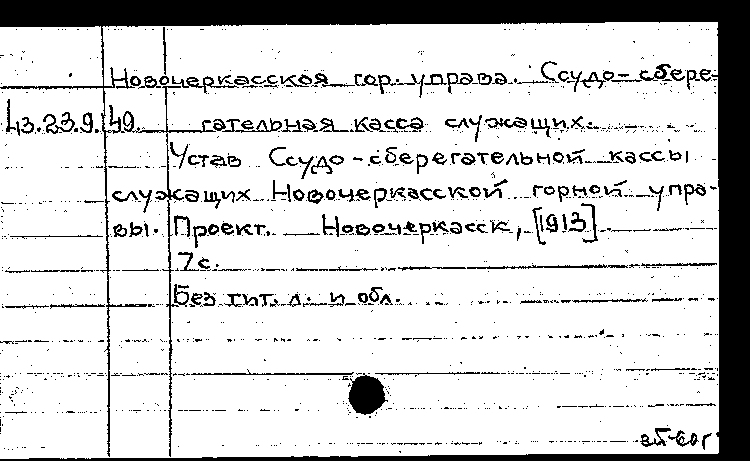 Новочеркасская гор. управа. Ссудо-сбере-
43.23.9.49. гательная касса служащих.
Устав Ссудо-сберегательной кассы
служащих Новочеркасской горной упра-
вы. Проект. Новочеркасск, [1913].
7 с.
Без тит. л. и обл.